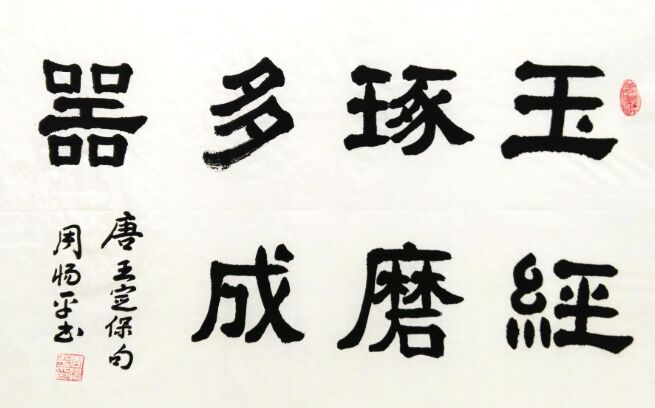 玉經
琢磨
多成
器
唐王定保句
周平书